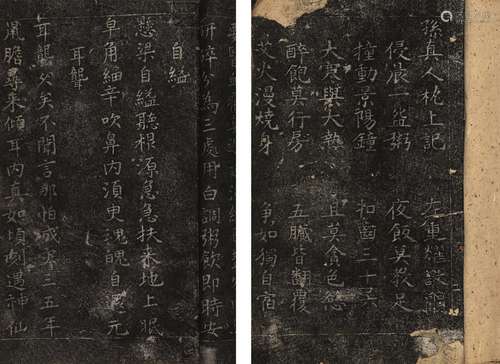 孫真人枕上記
侵晨一盌粥 夜飯莫教足
撞動景陽鐘 扣齒三十六
大寒與大熱 且莫貪色慾
醉飽莫行房 五臟皆翻覆
艾火漫燒身 爭如獨自宿
研碎分為三處用白調粥飲即時安
自縊
懸梁自縊聽根源急急扶来地上眠
皁角細辛吹鼻内湏臾魂魄自還元
耳聾
耳聾久矣不聞言那怕成聾三五年
鼠膽尋来傾耳内真如頃刻遇神仙